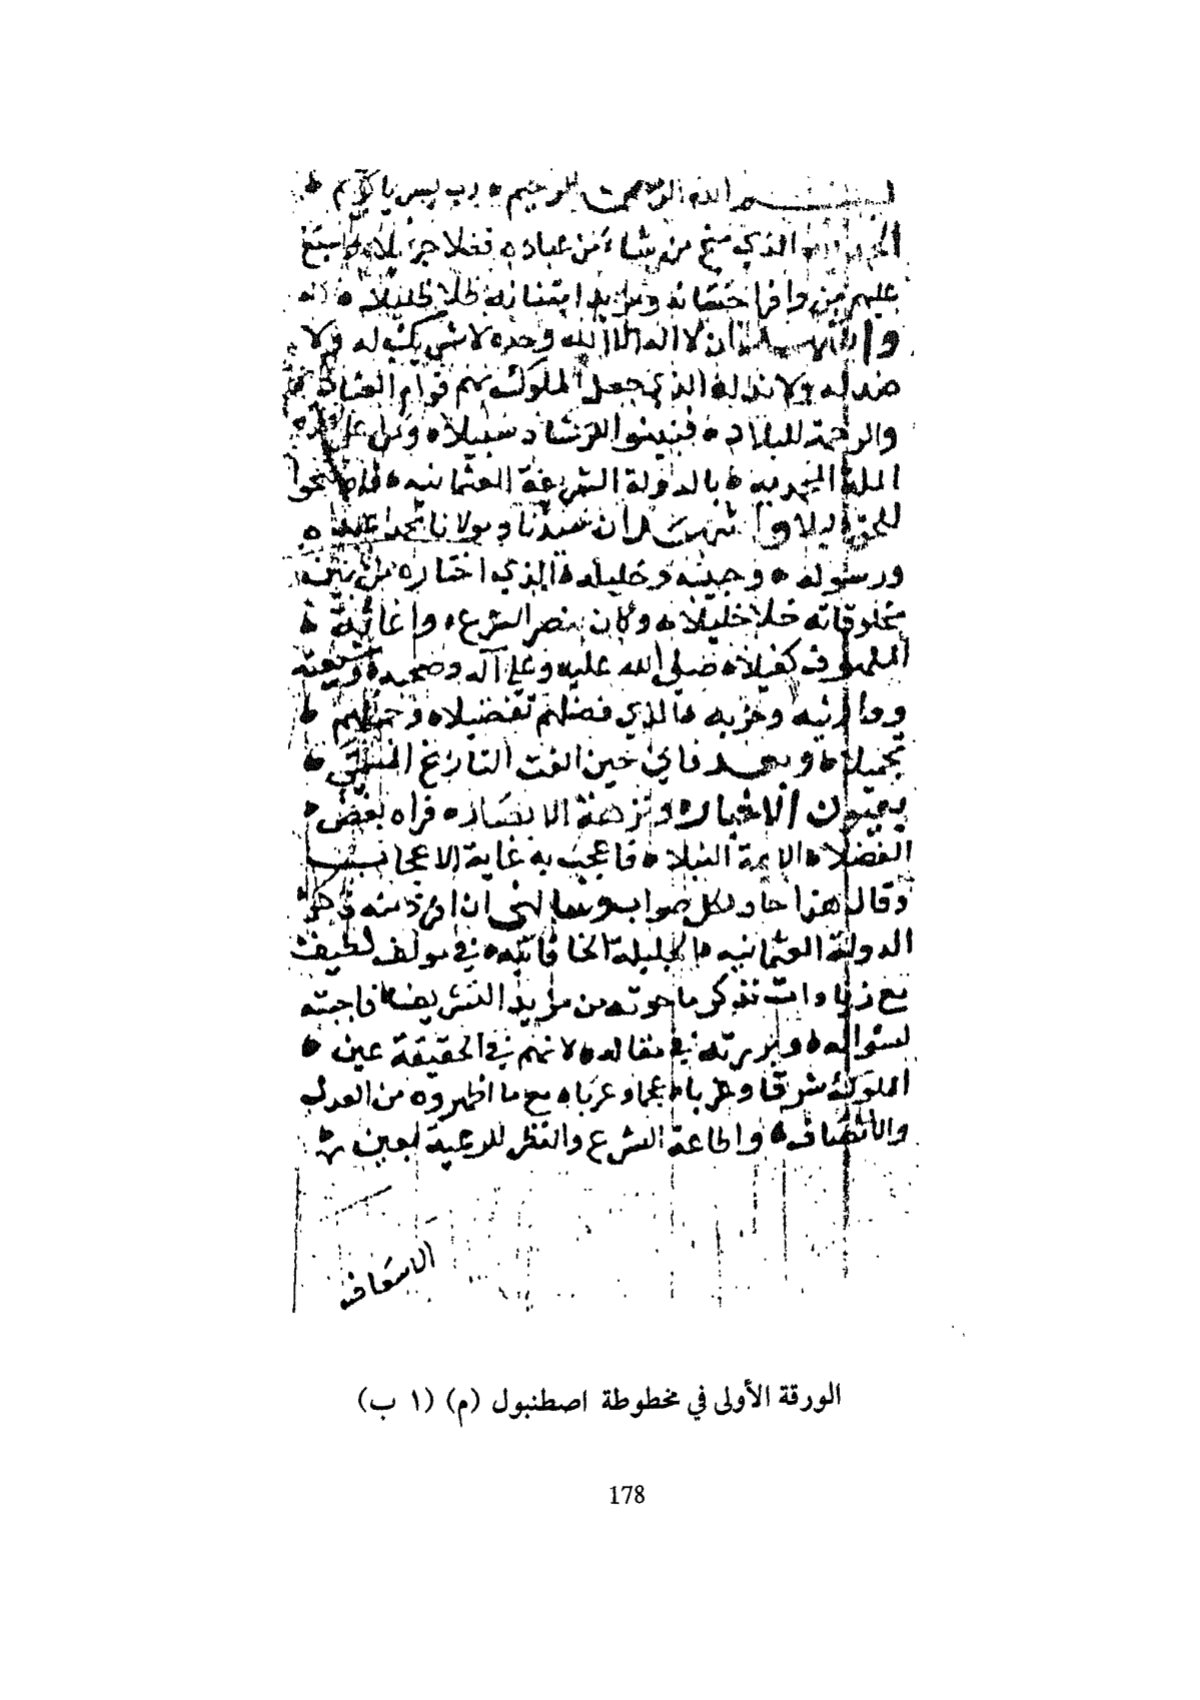 بسم الله الرحمن الرحيم ه رب يسر يا كريم ه
الحمد لله الذي منح من شاء من عباده فضلا جزيلا ه واسبغ
عليهم من وافر احسانه ومزيد امتنانه ظلا ظليلا ه
واشهد ان لا اله الا الله وحده لا شريك له ولا
ضد له ولا ند له الذي جعل الملوك بهم قوام العباد
والرحمة للبلاد ه فبينوا للرشاد سبيلا ه ومن على
الملة المحمدية ه بالدولة الشريفة العثمانيه ه فاضحوا
للحق دليلا واشهد ان سيدنا ومولانا محمدا عبده ه
ورسوله ه وحبيبه وخليله ه الذي اختاره من بين
مخلوقاته خلا خليلا ه وكان بنصر الشرع ه واغاثة ه
الملهوف كفيلا ه صلى الله عليه وعلى اله وصحبه وشيعته
ووارثيه وحزبه ه الذي فضلهم تفضيلا ه وجملهم ه
تجميلا ه وبعد فاني حين الفت التاريخ المسمى ه
بعيون الاخبار ه ونزهة الابصار ه فراه بعض ه
الفضلا ه الايمة النبلا ه فاعجب به غاية الاعجاب
وقال هذا حاو لكل صواب وسالني ان افرد منه ذكر
الدولة العثمانيه ه الجليلة الخاقانيه ه في مولف لطيف
مع زيادات تذكر ما حوته من مزيد التشريف ه فاجبته
لسواله ه وبررته في مقاله ه لانهم في الحقيقة عين ه
الملوك شرقا وغربا ه عجما وعربا ه مع ما اظهروه من العدل
والانصاف ه واطاعة الشرع والنظر للرعية بعين
الاسعاف
الورقة الأولى في مخطوطة اصطنبول (م) (١ ب)
178